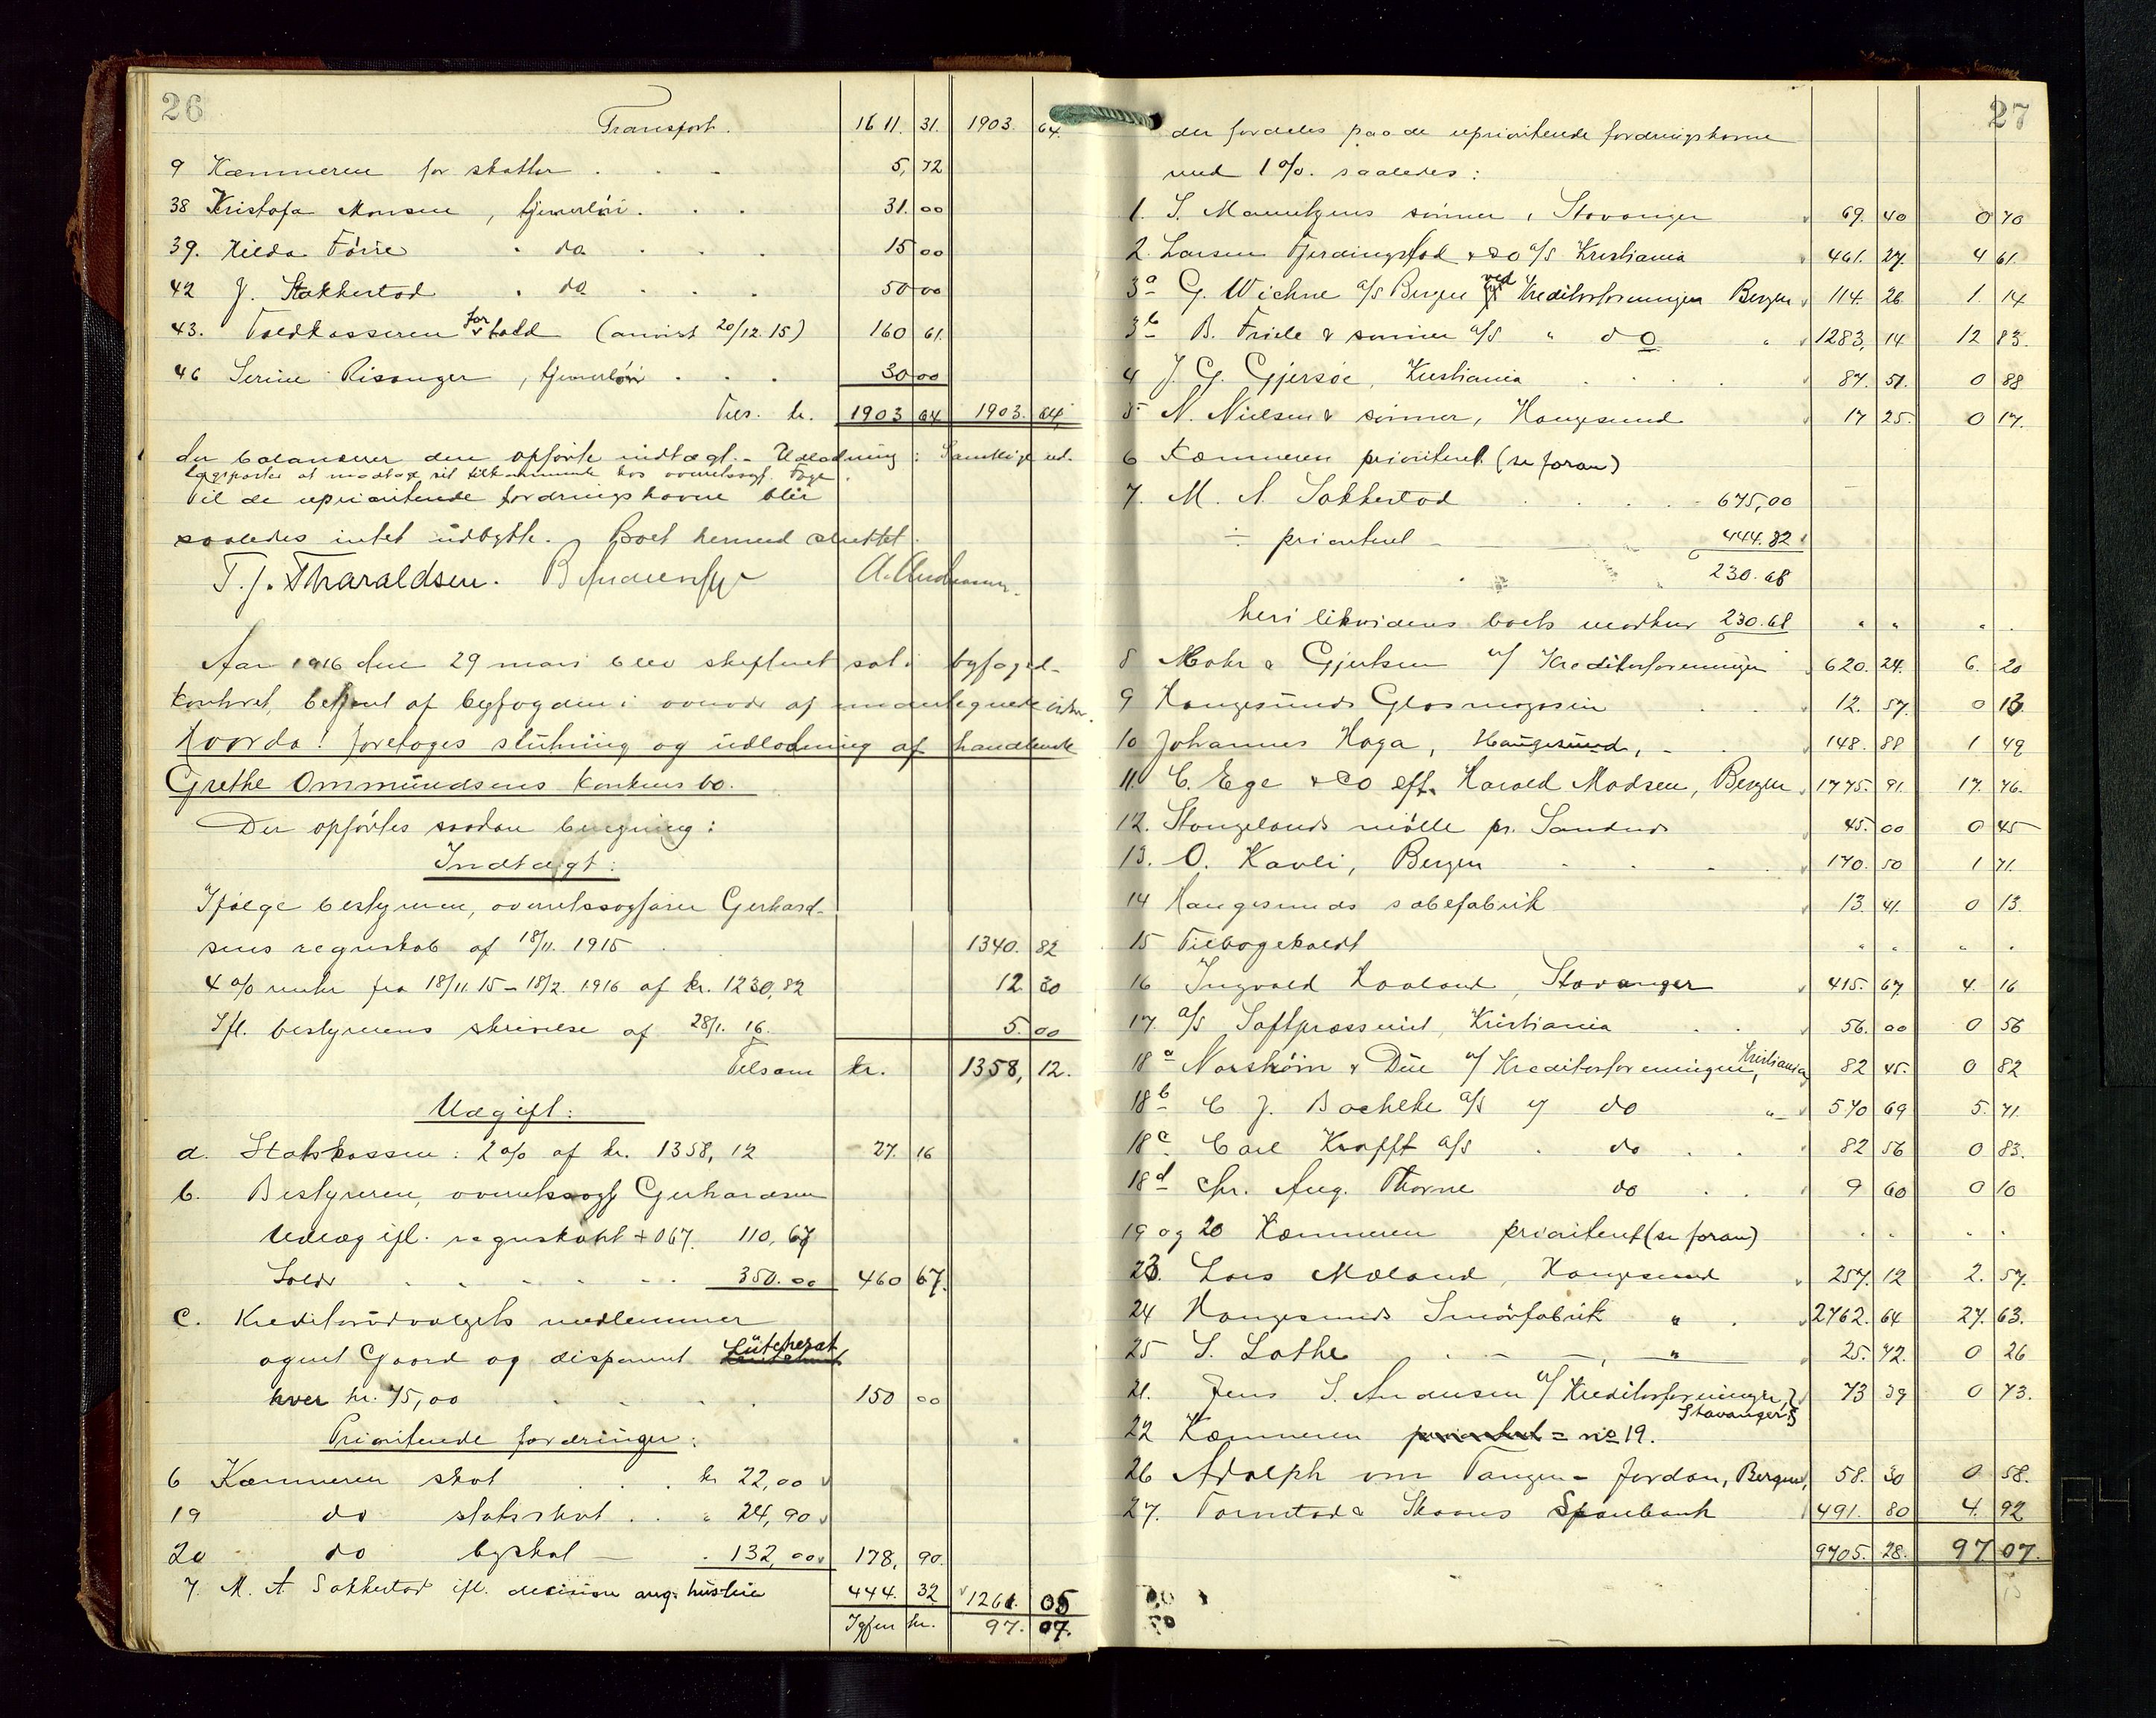 26
Transport. 1611. 31. 1903. 64.
9 Kæmneren for skatter . . . 5, 72
38 Kristofa Monsen, tjenerløn . . . 31. 00
39. Hilda Førre . do . . . 15 00
42 J. Stakkestad . do . . . 50 00
43. Toldkasseren for told (anvist 20/12.15) 160 61.
46 Serine Risanger, tjenerløn . . . 30 00
Tils. kr. 1903 64 1903. 64
der balanserer den opførte indtægt. – Udlodning: Samtlige ud-
lægsparter at modtage sit tilkommende hos overretssagf. Fyge.
Til de uprioriterede fordringshavere blir
saaledes intet udbytte. Boet hermed sluttet.
T. J. Tharaldsen. A. Andreassen.
Aar 1916 den 29 mars blev skifteret sat i byfoged-
kontoret, betjent af byfogden i overvær af undertegnede vidner.
Hvorda! foretoges slutning og udlodning af handlende
Grethe Ommundsens konkursbo.
Der opførtes saadan beregning:
Indtægt:
Ifølge bestyreren, overretssagfører Gerhard-
sens regnskab af 18/11. 1915 1340. 82
4 o/o renter fra 18/11 15 – 18/2. 1916 af kr. 1230,82 12. 30
Ifl. bestyrerens skrivelse af 28/1. 16. 5. 00
Tilsam kr. 1358, 12.
Udgift:
a. Statskassen: 2 o/o af kr. 1358, 12 27. 16
b. Bestyreren, overretssagf Gerhardsen
Udlæg ifl. regnskabet + 067. 110, 67
Salær . . . . . 350.00 460 67.
c. Kreditorudvalgets medlemmer
agent Gaard og disponent Lütcherat
hver kr. 75,00 . . . . 150 00
Prioriterede fordringer:
6 Kæmneren skat . . . kr 22,00
19 do statsskat . . " 24,90
20 do byskat – . 132,00 178, 90.
7. M. A. Sakkestad ifl. decision ang. husleie 444. 32 1261. 05
Igjen kr. 97. 07.
27
der fordeles paa de uprioriterede fordringshavere
med 1 o/o. saaledes:
1. S. Mauritzens sønner, Stavanger 69. 40 0 70
2. Larsen Fjerdingstad & Co a/s Kristiania 461. 27. 4 61.
3a G. Wichne a/s Bergen ved Kreditorforeningen Bergen 114. 26 1. 14
3b B. Friele & sønner a/s " do " 1283, 14 12 83.
4 J. G. Gjersøe, Kristiania . . . . 87. 51. 0 88
5 N. Nielsen & sønner, Haugesund 17 25. 0 17.
6 Kæmneren prioriteret (se foran)
7. M. A. Sakkestad . . . . 675,00
÷ prioriteret – 444.32
230.68
heri likvideres boets modkrav 230.68 " " " .
8 Mohr & Gjertsen v/ Kreditorforeningen 620. 24. 6. 20
9 Haugesunds Glasmagasin . . . 12. 57. 0 13.
10 Johannes Haga, Haugesund, – . 148. 88 1 49
11. C. Ege & Co eft. Harald Madsen, Bergen 1775. 91. 17. 76.
12. Stangelands mølle pr. Sandnes 45. 00 0 45
13. O. Kavli, Bergen . . . . 170. 50 1 71.
14 Haugesunds sæbefabrik 13. 41. 0 13.
15 Tilbagekaldt " . " .
16 Ingvald Haaland, Stavanger 415. 67. 4. 16
17. a/s Saftpresseriet, Kristiania . . 56. 00 0 56
18a Norstrøm & Due v/ Kreditorforeningen, Kristiania 82 45. 0 82
18b C J. Bachke a/s v/ do " 570 69 5. 71.
18c Carl Krafft a/s . do . . . 82 56 0 83.
18d Chr. Aug. Thorne do . . . 9 60 0 10
19 og 20 Kæmneren prioriteret (se foran) . . " .
23. Lars Mæland, Haugesund 257. 12 2. 57.
24 Haugesunds Smørfabrik " . 2762. 64 27. 63.
25 S. Lothe . – –, " 25. 72. 0 26
21. Jens S. Andersen v/ Kreditorforeningen, Stavanger 73 39 0 73.
22 Kæmneren prioriteret = no 19.
26 Adolph von Tangen – Jordan, Bergen, 58. 30 0 58.
27. Torvestad & Skaares Sparebank 491. 80 4. 92
9705. 28. 97 07.